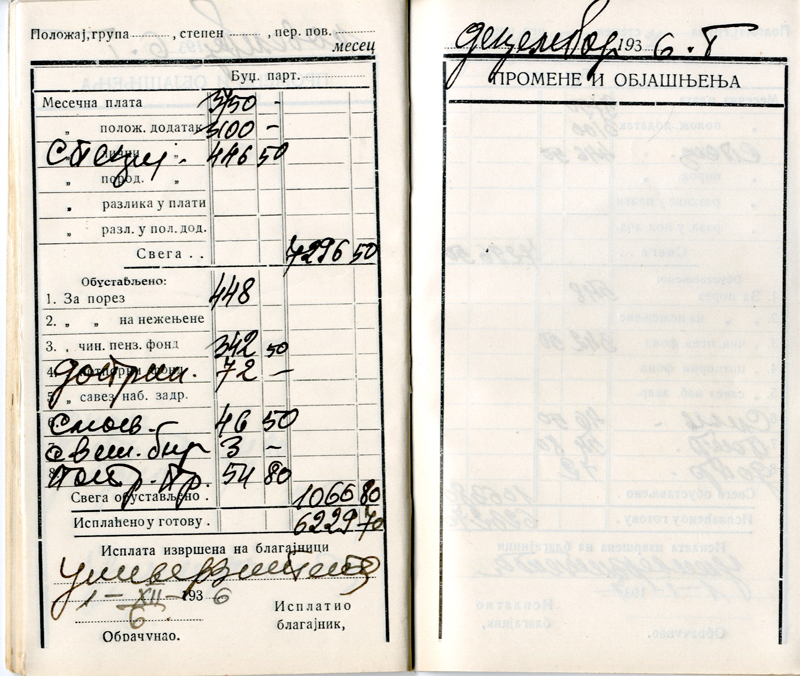 Положај, група , степен , пер. пов.
месец
Буџ. парт.
Месечна плата 3750 –
„ полож. додатак 3100 –
Специј. „ 446 50
„ пород. „
„ разлика у плати
„ разл. у пол. дод.
Свега . . 7296 50
Обустављено:
1. За порез 448
2. „ „ на нежењене
3. „ чин. пенз. фонд 342 50
4. 72 –
5. „ савез. наб. задр.
46 50
3 –
54 80
Свега обустављено . 1066 80
Исплаћено у готову . 6229 70
Исплата извршена на благајници
Универзитета
1 – XII – 193 6
6
Обрачунао. Исплатио
благајник,
децембар 193 6. Г
ПРОМЕНЕ И ОБЈАШЊЕЊА